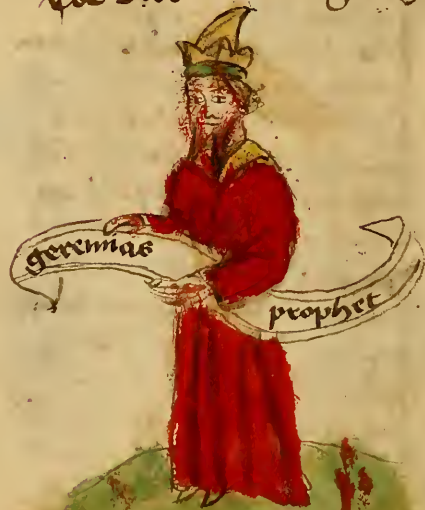 geremias
prophet